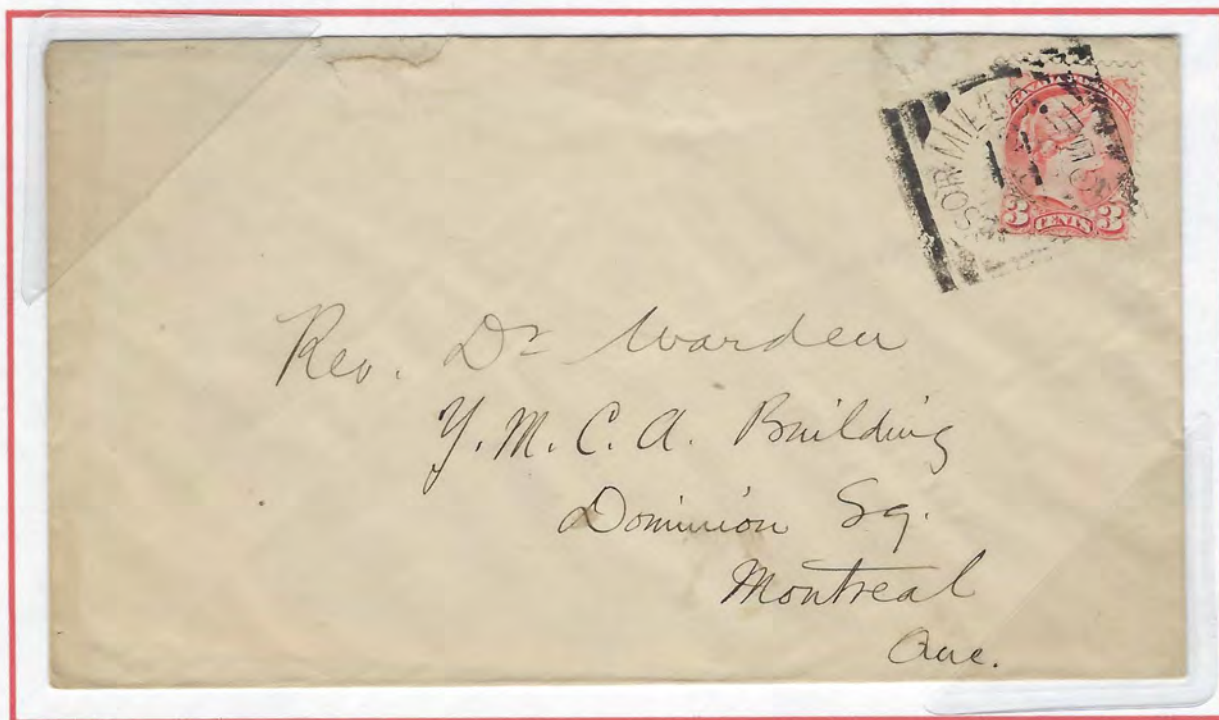 CANADA POSTAGE
3 CENTS 3
Rev. Dr Warden
Y. M. C. A. Building
Dominion Sq.
Montreal
Que.